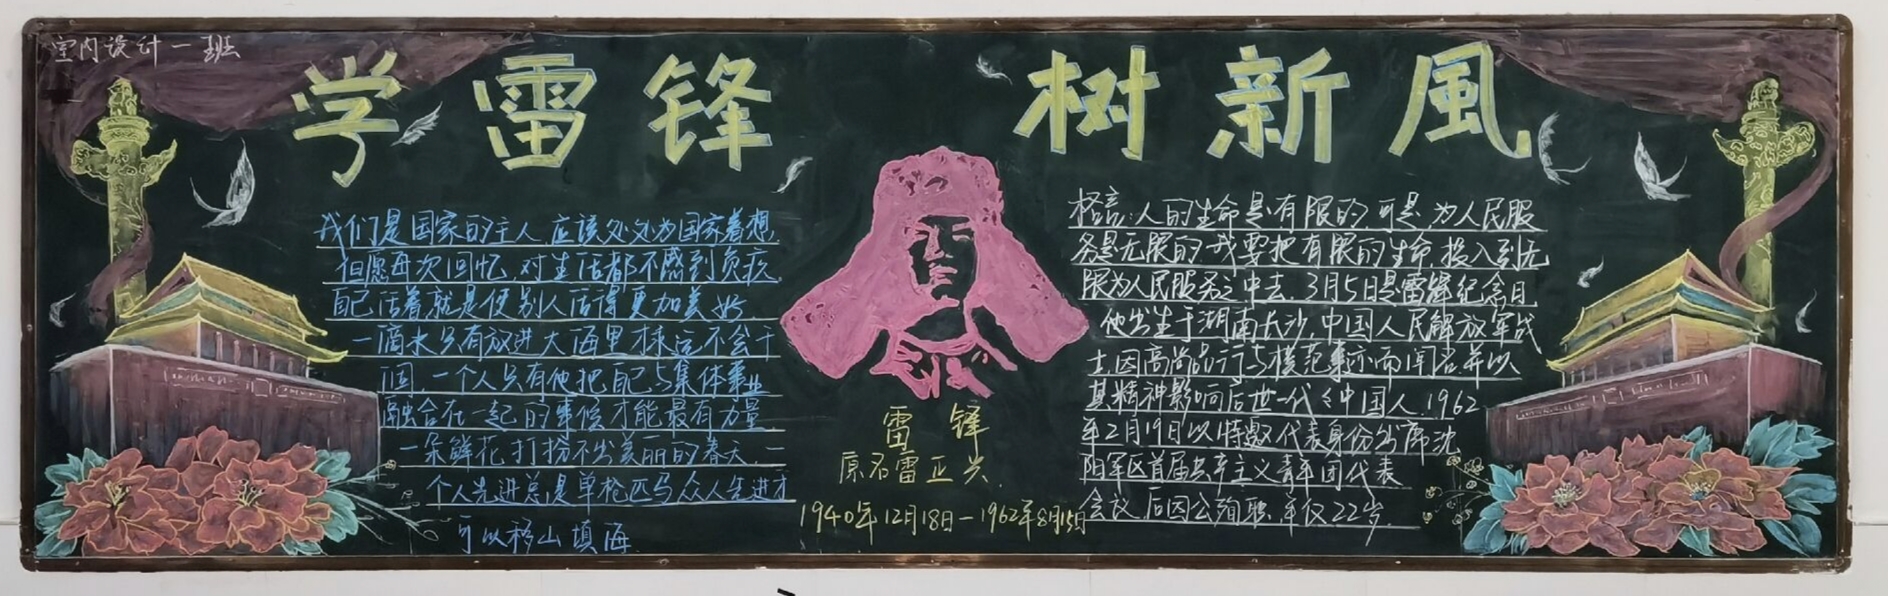 室内设计一班
学雷锋 树新風
我们是国家的主人应该处处为国家着想
但愿每次回忆,对生活都不感到负疚
自己活着就是使别人活得更加美好
一滴水只有放进大海里才永远不会干
涸,一个人只有他把自己与集体事业
融合在一起的时候才能最有力量
一朵鲜花打扮不出美丽的春天,一
个人先进总是单枪匹马众人先进才
可以移山填海
雷锋
原名雷正兴
1940年12月18日-1962年8月15日
格言:人的生命是有限的,可是,为人民服
务是无限的我要把有限的生命,投入到无
限为人民服务之中去.3月5日是雷锋纪念日
他出生于湖南长沙,中国人民解放军战
士,因高尚品行与模范事迹而闻名并以
其精神影响后世一代代中国人.1962
年2月19日以特邀代表身份出席沈
阳军区首届共产主义青年团代表
会议,后因公殉职,年仅22岁.